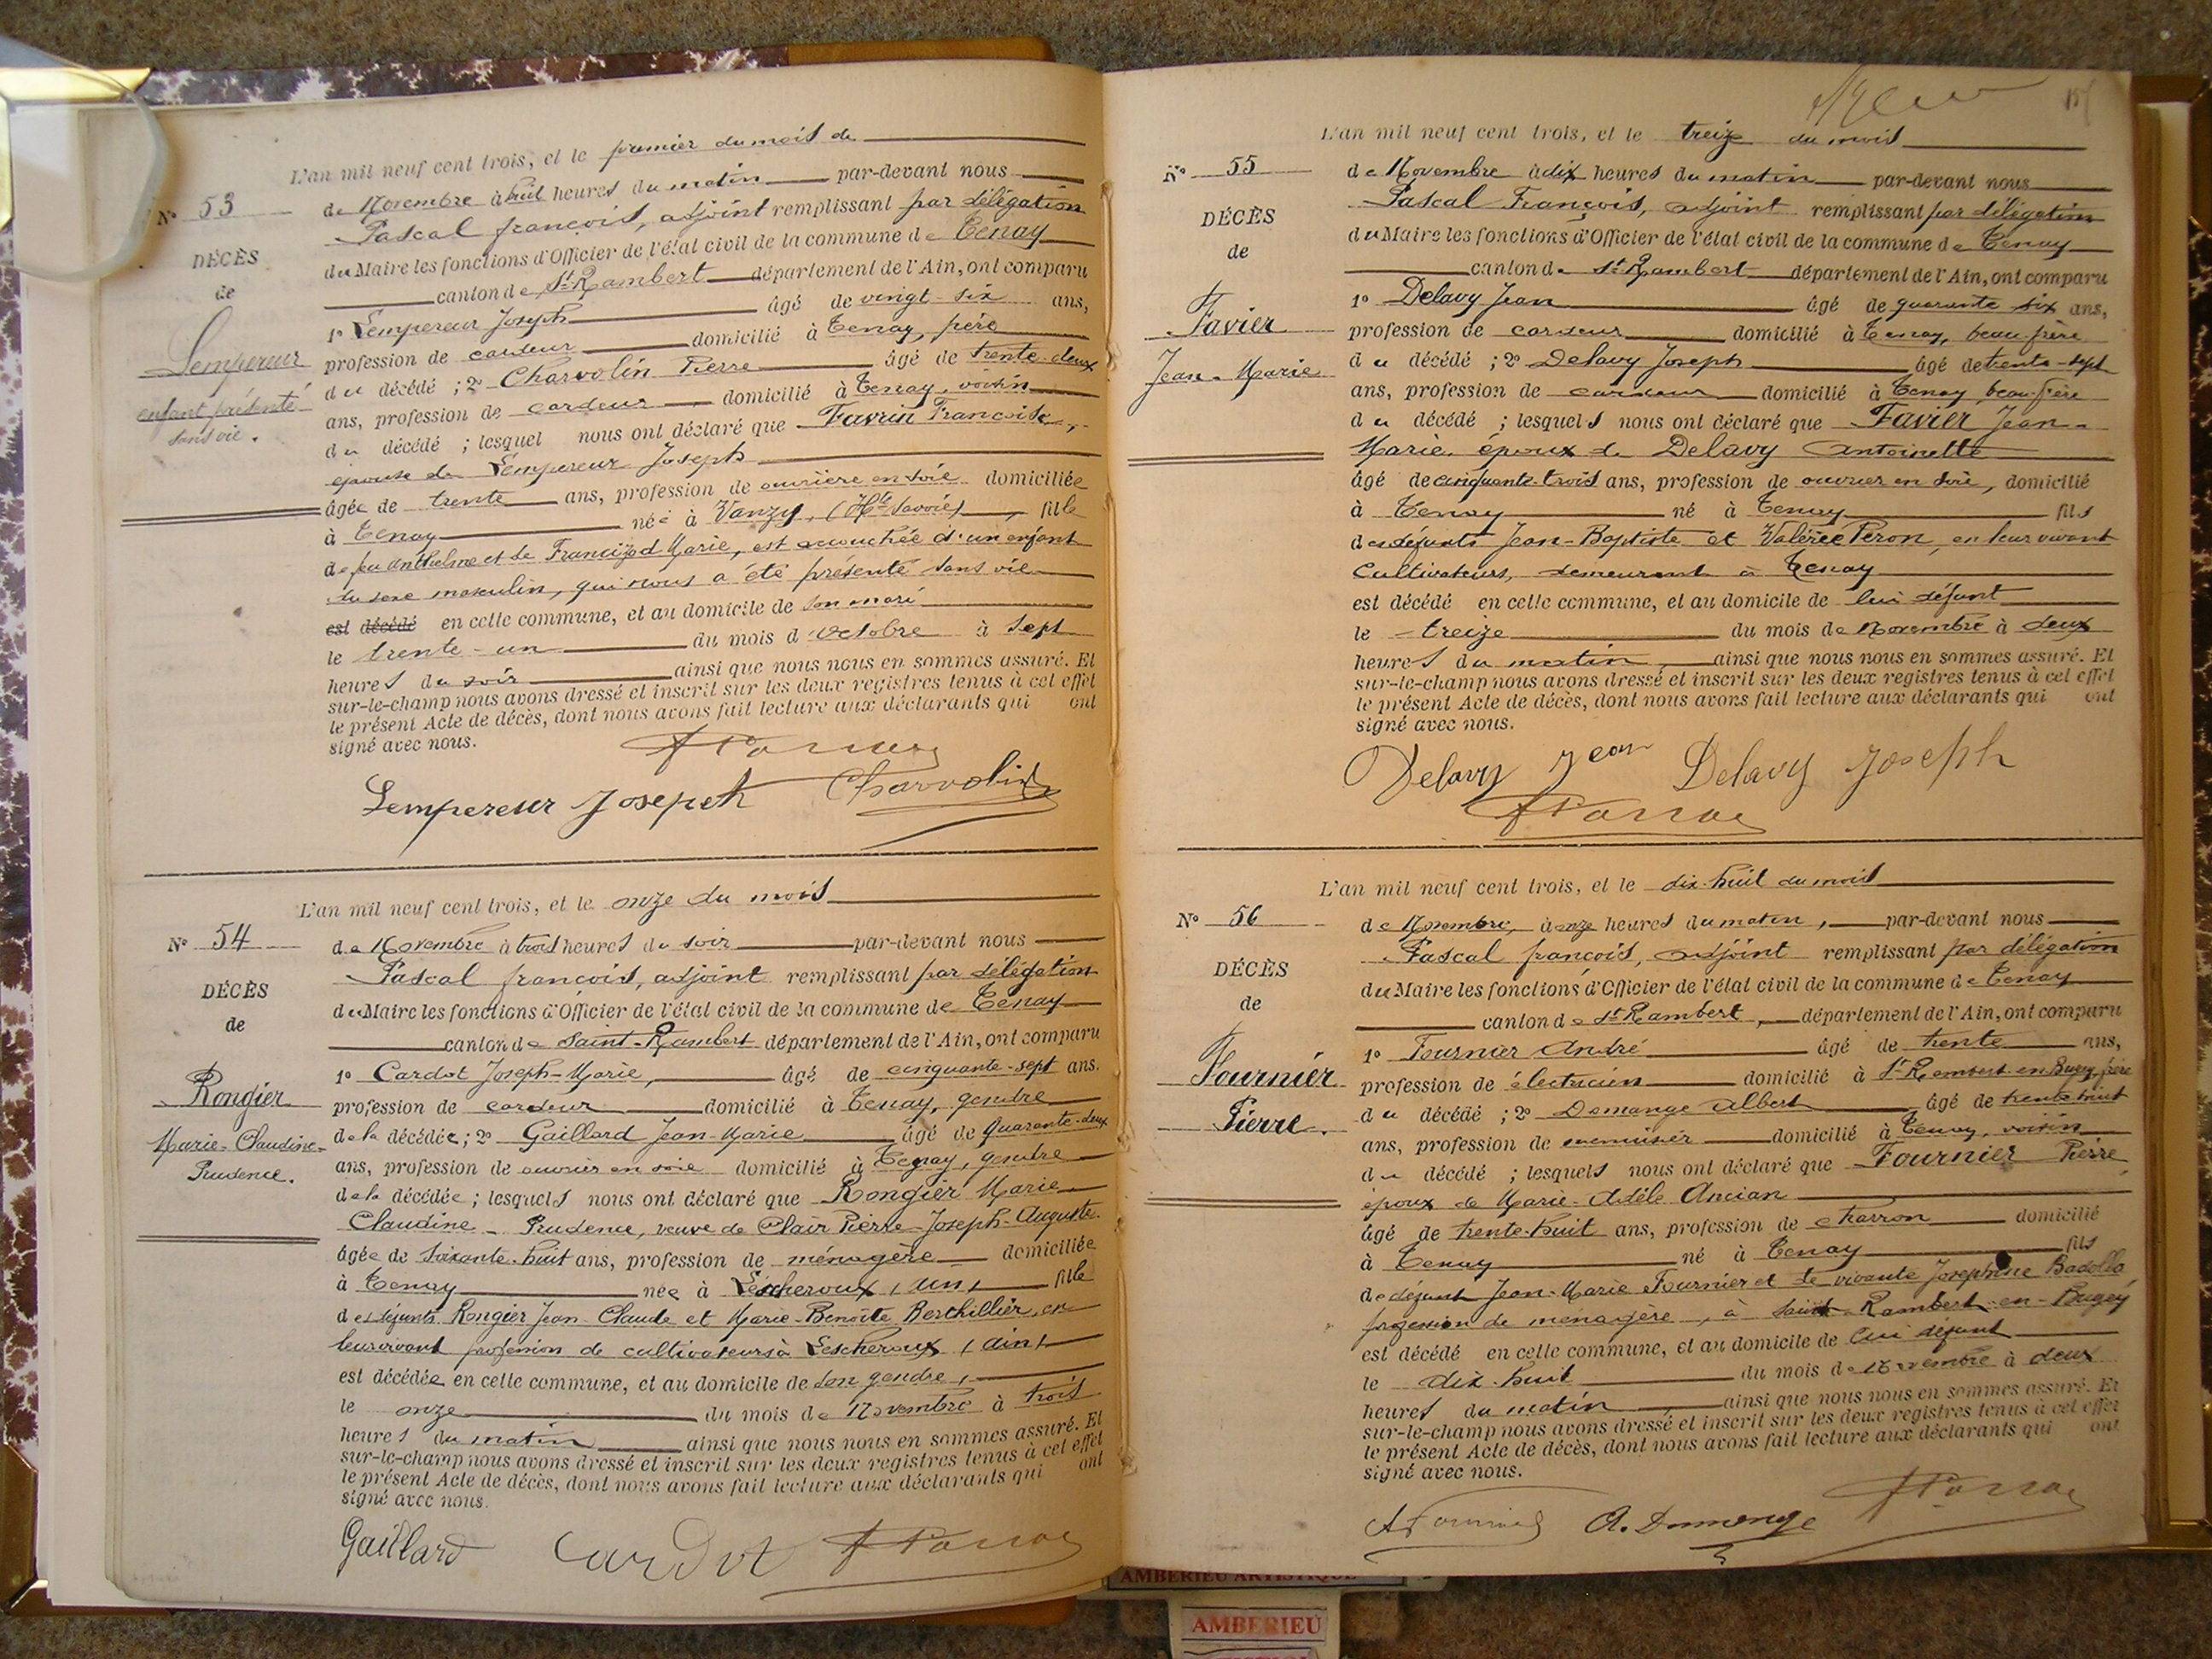 L'an mil neuf cent trois, et le premier du mois de
N° 53
de Novembre à huit heures du matin par-devant nous
Pascal françois, adjoint remplissant par délégation
DÉCÈS
du Maire les fonctions d'Officier de l'état civil de la commune de Tenay
de
canton de St Rambert département de l'Ain, ont comparu
Lempereur
enfant présenté
sans vie.
1° Lempereur Joseph âgé de vingt-six ans,
profession de cardeur domicilié à Tenay, père
du décédé ; 2° Charvolin Pierre âgé de trente-deux
ans, profession de cardeur domicilié à Tenay, voisin
du décédé ; lesquel nous ont déclaré que Favrin Françoise,
épouse de Lempereur Joseph
âgée de trente ans, profession de ouvrière en soie domiciliée
à Tenay née à Vanzy, (Hte Savoie), fille
de feu Anthelme et de Marie, est accouchée d'un enfant
du sexe masculin, qui nous a été présenté sans vie
est décédé en cette commune, et au domicile de son mari
le trente-un du mois d'octobre à sept
heures du soir ainsi que nous nous en sommes assuré. Et
sur-le-champ nous avons dressé et inscrit sur les deux registres tenus à cet effet
le présent Acte de décès, dont nous avons fait lecture aux déclarants qui ont
signé avec nous.
Lempereur Joseph Charvolin
L'an mil neuf cent trois, et le onze du mois
N° 54
de Novembre à trois heures du soir par-devant nous
Pascal françois, adjoint remplissant par délégation
DÉCÈS
du Maire les fonctions d'Officier de l'état civil de la commune de Tenay
de
canton de Saint-Rambert département de l'Ain, ont comparu
Rongier
Marie-Claudine-
Prudence.
1° Cardot Joseph-Marie, âgé de cinquante-sept ans.
profession de cardeur domicilié à Tenay, gendre
de la décédée; 2° Gaillard Jean-Marie âgé de quarante-deux
ans, profession de ouvrier en soie domicilié à Tenay, gendre
de la décédée ; lesquels nous ont déclaré que Rongier Marie
Claudine-Prudence, veuve de Clair Pierre-Joseph-Auguste
âgée de soixante-huit ans, profession de ménagère domiciliée
à Tenay née à Lescheroux, (Ain), fille
des défunts Rongier Jean-Claude et Marie-Benoîte Berthillier, en
leur vivant profession de cultivateurs à Lescheroux, (Ain)
est décédée en cette commune, et au domicile de son gendre,
le onze du mois de Novembre à trois
heures du matin ainsi que nous nous en sommes assuré. Et
sur-le-champ nous avons dressé et inscrit sur les deux registres tenus à cet effet
le présent Acte de décès, dont nous avons fait lecture aux déclarants qui ont
signé avec nous.
Gaillard Cardot
L'an mil neuf cent trois, et le treize du mois
N° 55
de Novembre à dix heures du matin par-devant nous
Pascal François, adjoint remplissant par délégation
DÉCÈS
du Maire les fonctions d'Officier de l'état civil de la commune de Tenay
de
canton de St Rambert département de l'Ain, ont comparu
Favier
Jean-Marie
1° Delavy Jean âgé de quarante six ans,
profession de cardeur domicilié à Tenay, beau-frère
du décédé ; 2° Delavy Joseph âgé de trente-sept
ans, profession de cardeur domicilié à Tenay beau-frère
du décédé ; lesquels nous ont déclaré que Favier Jean-
Marie, époux de Delavy Antoinette
âgé de cinquante-trois ans, profession de ouvrier en soie, domicilié
à Tenay né à Tenay fils
des défunts Jean-Baptiste et Valérie Péron, en leur vivant
Cultivateurs, demeurant à Tenay
est décédé en cette commune, et au domicile de lui défunt
le treize du mois de Novembre à deux
heures du matin, ainsi que nous nous en sommes assuré. Et
sur-le-champ nous avons dressé et inscrit sur les deux registres tenus à cet effet
le présent Acte de décès, dont nous avons fait lecture aux déclarants qui ont
signé avec nous.
Delavy Jean Delavy Joseph
L'an mil neuf cent trois, et le dix-huit du mois
N° 56
de Novembre, à onze heures du matin, par-devant nous
Pascal françois, adjoint remplissant par délégation
DÉCÈS
du Maire les fonctions d'Officier de l'état civil de la commune de Tenay
de
canton de St Rambert, département de l'Ain, ont comparu
Fournier
Pierre.
1° Fournier André âgé de trente ans,
profession de électricien domicilié à St Rambert-en-Bugey, frère
du décédé ; 2° Domange Albert âgé de trente huit
ans, profession de menuisier domicilié à Tenay, voisin
du décédé ; lesquels nous ont déclaré que Fournier Pierre,
époux de Marie-Adèle Ancian
âgé de trente-huit ans, profession de charron domicilié
à Tenay né à Tenay fils
de défunt Jean-Marie Fournier et de vivante Joséphine
profession de ménagère, à Saint-Rambert-en-Bugey
est décédé en cette commune, et au domicile de lui défunt
le dix-huit du mois de Novembre à deux
heures du matin ainsi que nous nous en sommes assuré. Et
sur-le-champ nous avons dressé et inscrit sur les deux registres tenus à cet effet
le présent Acte de décès, dont nous avons fait lecture aux déclarants qui ont
signé avec nous.
A Fournier
AMBERIEU ARTISTIQUE
AMBERIEU